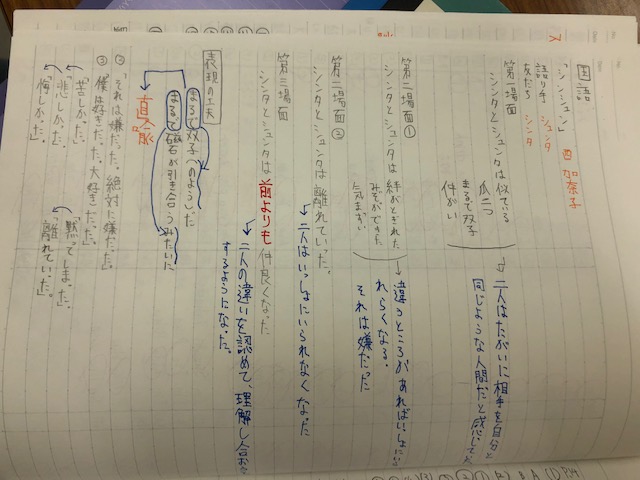 国語
「シンシュン」 西 加奈子
語り手 シュンタ
友だち シンタ
第一場面
シンタとシュンタは似ている
瓜二つ
まるで双子
仲がいい
→ 二人はたがいに相手を自分と
同じような人間だと感じてた
第二場面①
シンタとシュンタは絆がとぎれた
みぞができた
気まずい
→ 違うところがあればいっしょにい
れらくなる。
それは嫌だった
第二場面②
シンタとシュンタは離れていった。
↓ 二人はいっしょにいられなくなった
第三場面
シンタとシュンタは前よりも仲良くなった
↓ 二人の違いを認めて、理解し合おう
とするようになった。
表現の工夫
まるで双子(のよう)だ
まるで磁石が引き合うみたいに
直喩
②「それは嫌だった。絶対に嫌だった。」
③「僕は好きだった。大好きだった。」
「苦しかった。」
「悲しかった。」
「悔しかった。」
「黙ってしまった。」
「離れていった。」